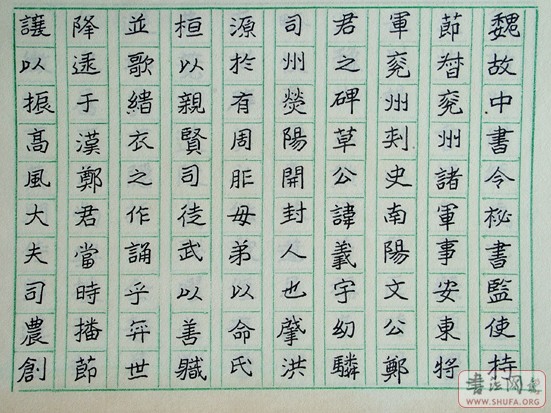 魏故中書令秘書監使持
節督兗州諸軍事安東將
軍兗州刾史南陽文公鄭
君之碑草公諱羲字幼驎
司州熒陽開封人也肇洪
源於有周胙母弟以命氏
桓以親賢司徒武以善軄
並歌緇衣之作誦乎奕世
降逮于漢鄭君當時播節
讓以振高風大夫司農創
书法网
WWW.SHUFA.ORG